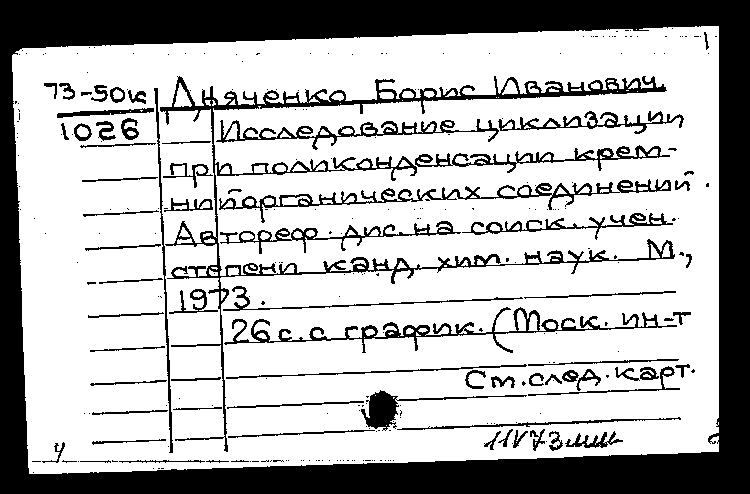 73-50к Дьяченко, Борис Иванович.
1026 Исследование циклизации
при поликонденсации крем-
нийорганических соединений.
Автореф. дис. на соиск. учен.
степени канд. хим. наук. М.,
1973.
26 с. с график. (Моск. ин-т
См. след. карт.